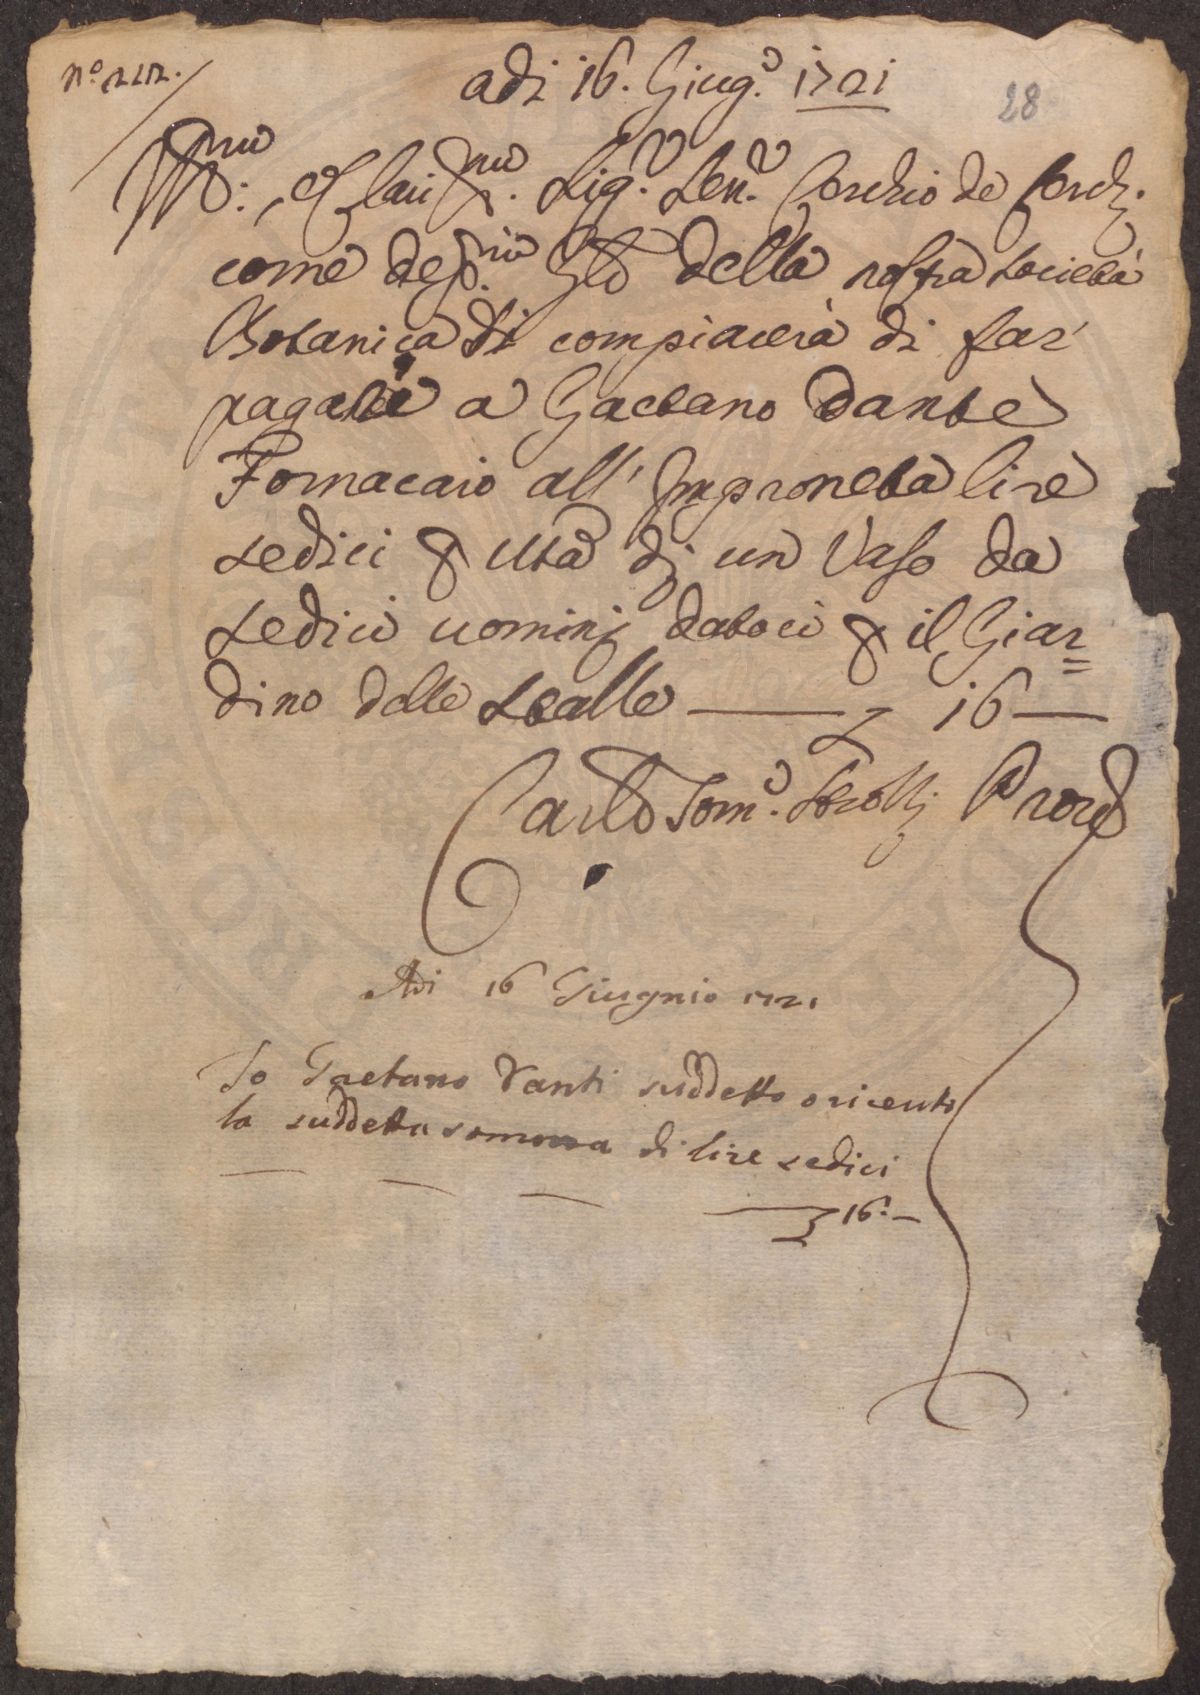 adi 16. Giug.o 1721
28
Ill.mo, e Clariss.mo Sig.r Sen.r Cerchio de Cerchi
come dep.rio Gle della nostra Società
Botanica si compiacerà di far
pagare a Gaetano Dante
Fornacaio all' Impruneta lire
sedici p uta di un Vaso da
sedici uomini datoci p il Giar=
dino delle Stalle — 16 —
Carlo Tom.o Prov.
Adi 16 Giugnio 1721
Io Gaetano Danti suddetto o riceuto
la suddetta somma di lire sedici
16.—